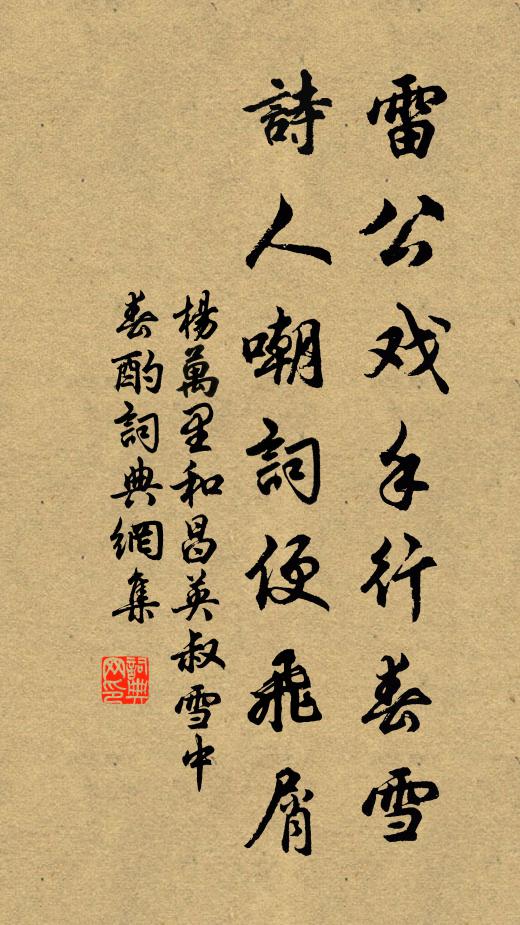 雷公戏手行春雪
詩人嘲詞便飛屑
楊萬里和昌英叔雪中
春酌詞典網集
詞典网印